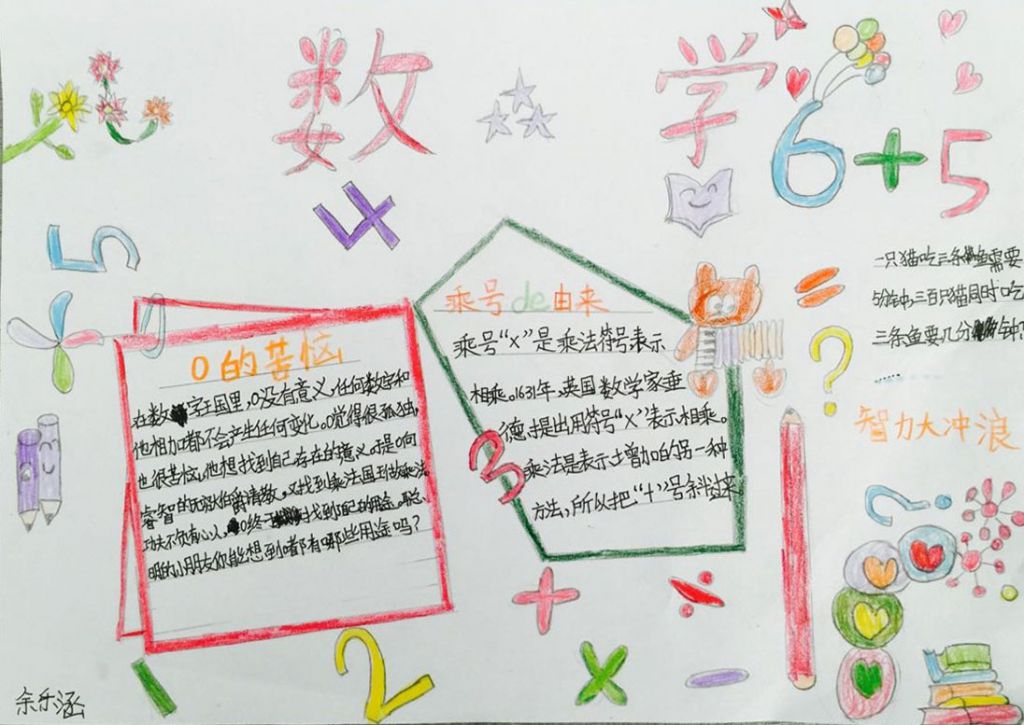 数学
6+5
4
5
=
?
0的苦恼
在数字王国里，0没有意义，任何数字和
他相加都不会产生任何变化。0觉得很孤独，
也很苦恼，他想找到自己存在的意义，于是0向
睿智的
功夫不负有心人，0终于找到了自己的用途。聪
明的小朋友你能想到0都有哪些用途吗？
乘号de由来
乘号“×”是乘法符号表示
相乘。1631年，英国数学家垂
德于是出用符号“×”表示相乘。
乘法是表示土增加的另一种
方法，所以把“十”号斜过来
3
一只猫吃三条鱼需要
5分钟，三百只猫同时吃
三条鱼要几分钟？
智力大冲浪
?
+
÷
2
×
-
余乐涵